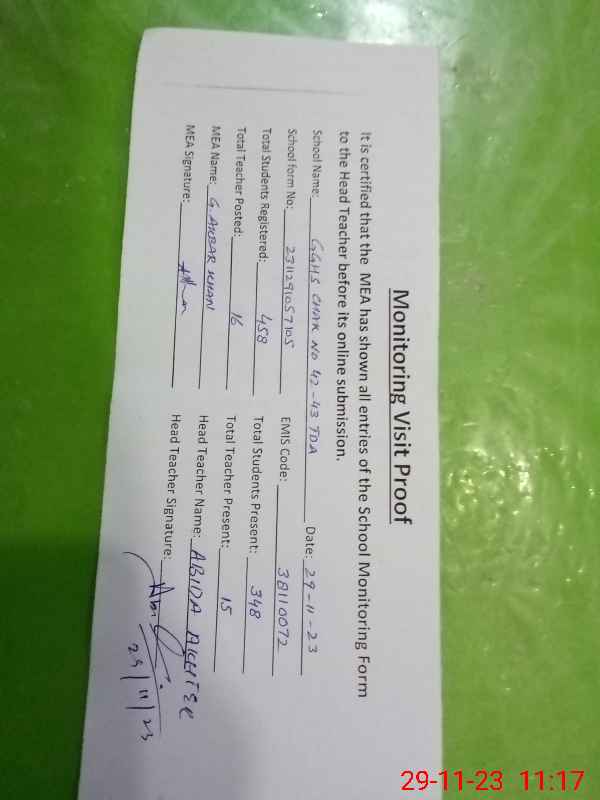 Monitoring Visit Proof
It is certified that the MEA has shown all entries of the School Monitoring Form
to the Head Teacher before its online submission.
School Name: GGHS CHAK NO 42-43 TDA Date: 29-11-23
School form No: 2311291057105 EMIS Code: 38110072
Total Students Registered: 458 Total Students Present: 348
Total Teacher Posted: 16 Total Teacher Present: 15
MEA Name: G. AKBAR KHAN Head Teacher Name: ABIDA AKHTER
MEA Signature: Head Teacher Signature: Abi
29/11/23
29-11-23 11:17